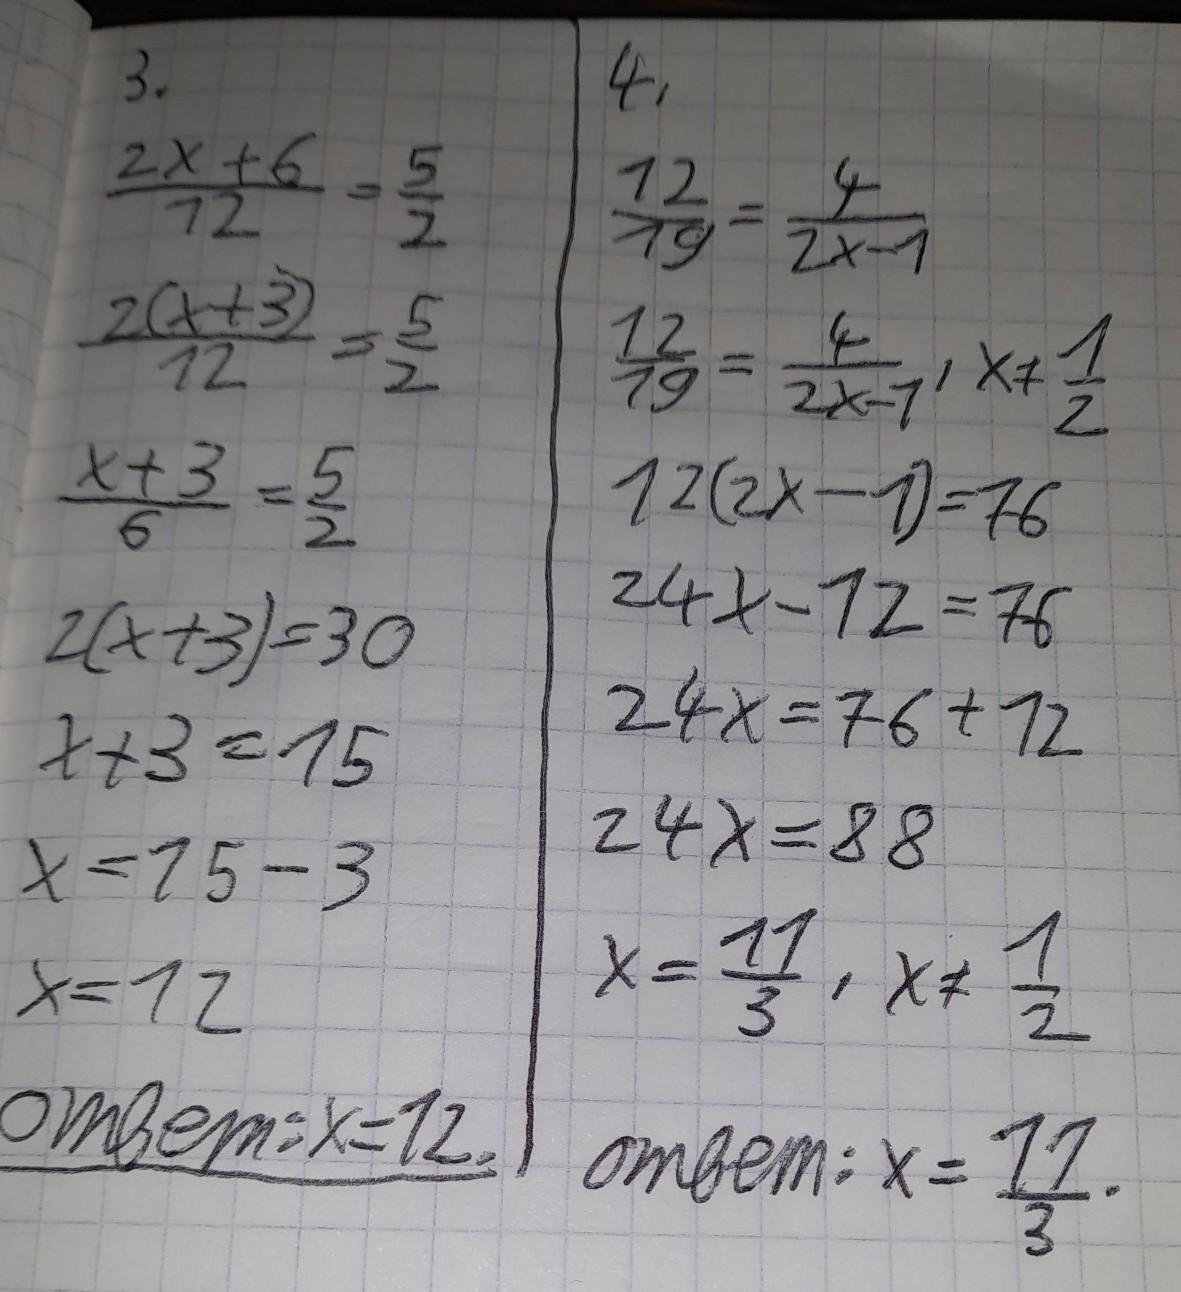 3.
(2x+6)/12 = 5/2
2(x+3)/12 = 5/2
(x+3)/6 = 5/2
2(x+3)=30
x+3=15
x=15-3
x=12
ответ: x=12.
4.
12/19 = 4/(2x-1)
12/19 = 4/(2x-1), x≠1/2
12(2x-1)=76
24x-12=76
24x=76+12
24x=88
x=11/3, x≠1/2
ответ: x=11/3.